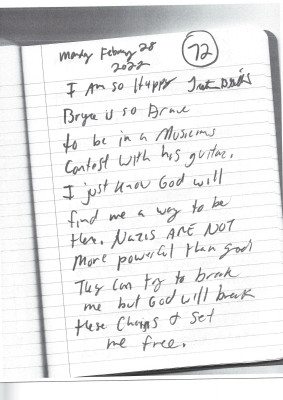 Monday February 28
72
2022
I Am so Happy
Bryce is so Brave
to be in a Musicians
Contest with his guitar.
I just know God will
find me a way to be
there. Nazis ARE NOT
More powerful than good
They can try to break
me but God will break
these Chains & set
me free.